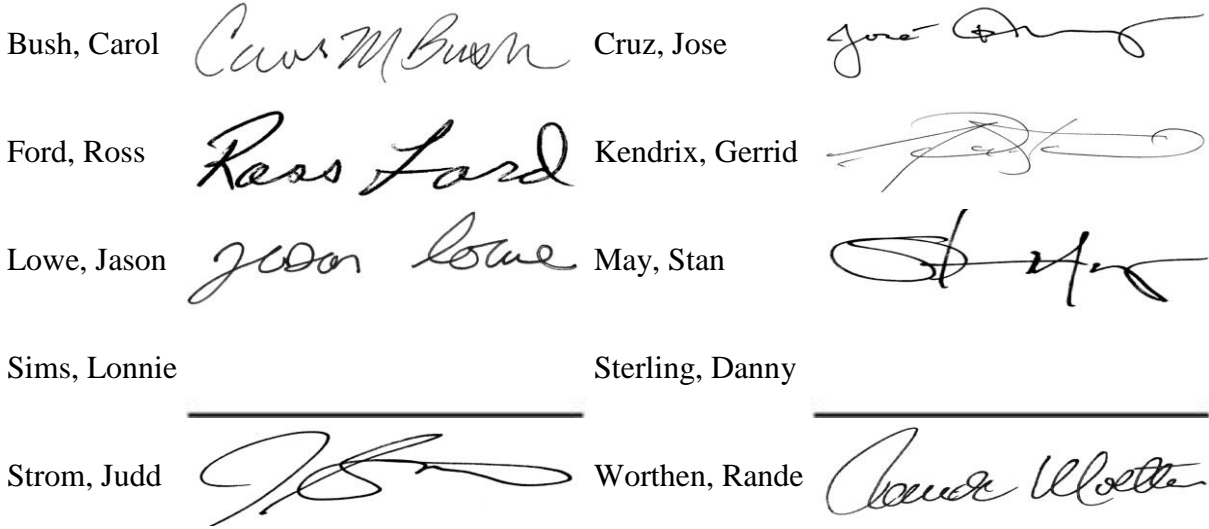 Bush, Carol Carol M Bush Cruz, Jose José
Ford, Ross Ross Ford Kendrix, Gerrid
Lowe, Jason Jason Lowe May, Stan
Sims, Lonnie Sterling, Danny
Strom, Judd Worthen, Rande